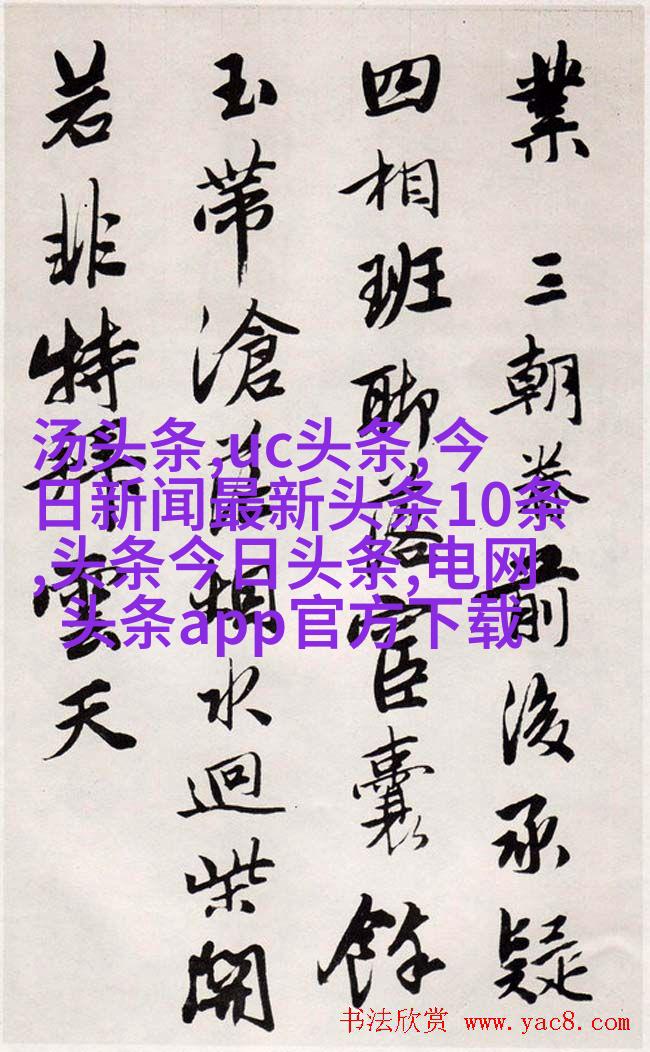 業 三朝前後承疑
四相班聊落宦囊餘
玉帶滄烟水迴柴開
若非特雲天
汤头条,uc头条,今
日新闻最新头条10条
,头条今日头条,电网
头条app官方下载
书法欣赏 www.yac8.com